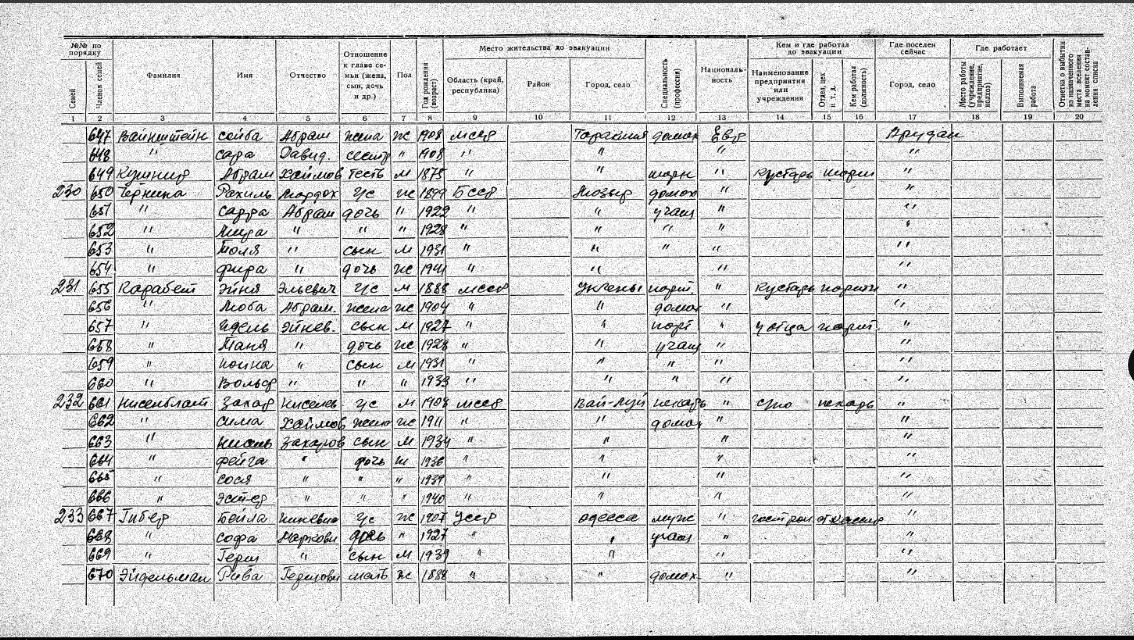 №№ по порядку
Место жительства до эвакуации
Кем и где работал до эвакуации
Где поселен сейчас
Где работает
Семей
Членов семей
Фамилия
Имя
Отчество
Отношение к главе семьи (жена, сын, дочь и др.)
Пол
Год рождения (возраст)
Область (край, республика)
Район
Город, село
Специальность (профессия)
Национальность
Наименование предприятия или учреждения
Отдел, цех и т. д.
Кем работал (должность)
Город, село
Место работы (учреждение, предприятие, колхоз)
Выполняемая работа
Отметка о выбытии из назначенного места вселения на момент составления списка
1 2 3 4 5 6 7 8 9 10 11 12 13 14 15 16 17 18 19 20
647 Вайнштейн Сейва Абрам жена ж 1908 мсср домох Евр
648 " Сара Давид. сестр " 1908 " " " "
649 Абрам Хаймов тесть м 1875 " " " кустарь "
230 650 Черкина Рахиль Мордох г/с ж 1899 Бсср Мозырь домох " "
651 " Сарра Абрам дочь " 1922 " " учащ " "
652 " " " " 1928 " " " " "
653 " " сын м 1931 " " " " "
654 " Фира " дочь ж 1941 " " " "
231 655 Карабет Эйня Эльевич г/с м 1888 мсср Унгены порт. " кустарь "
656 " Люба Абрам. жена ж 1904 " домох " "
657 " Идель Эйнев. сын м 1927 " " порт " у отца порт. "
658 " Маня " дочь ж 1928 " учащ " "
659 " " сын м 1931 " " " " "
660 " Вольф " " " 1933 " " " " "
232 661 Нисенблат Захар Нисенев. г/с м 1908 мсср пекарь " пекарь "
662 " Сима Хаймов жена ж 1911 " " домох " "
663 " Захаров сын м 1934 " " " "
664 " Фейга " дочь ж 1936 " " " "
665 " Сося " " " 1939 " " " "
666 " Эстер " " 1940 " " " "
233 667 Гибер Бейла г/с ж 1907 Усср Одесса " "
668 " Софа Маркови дочь " 1927 " " учащ " "
669 " Герш " сын м 1939 " " " "
670 Эйдельман Рива Гершови мать ж 1888 " " домох " "